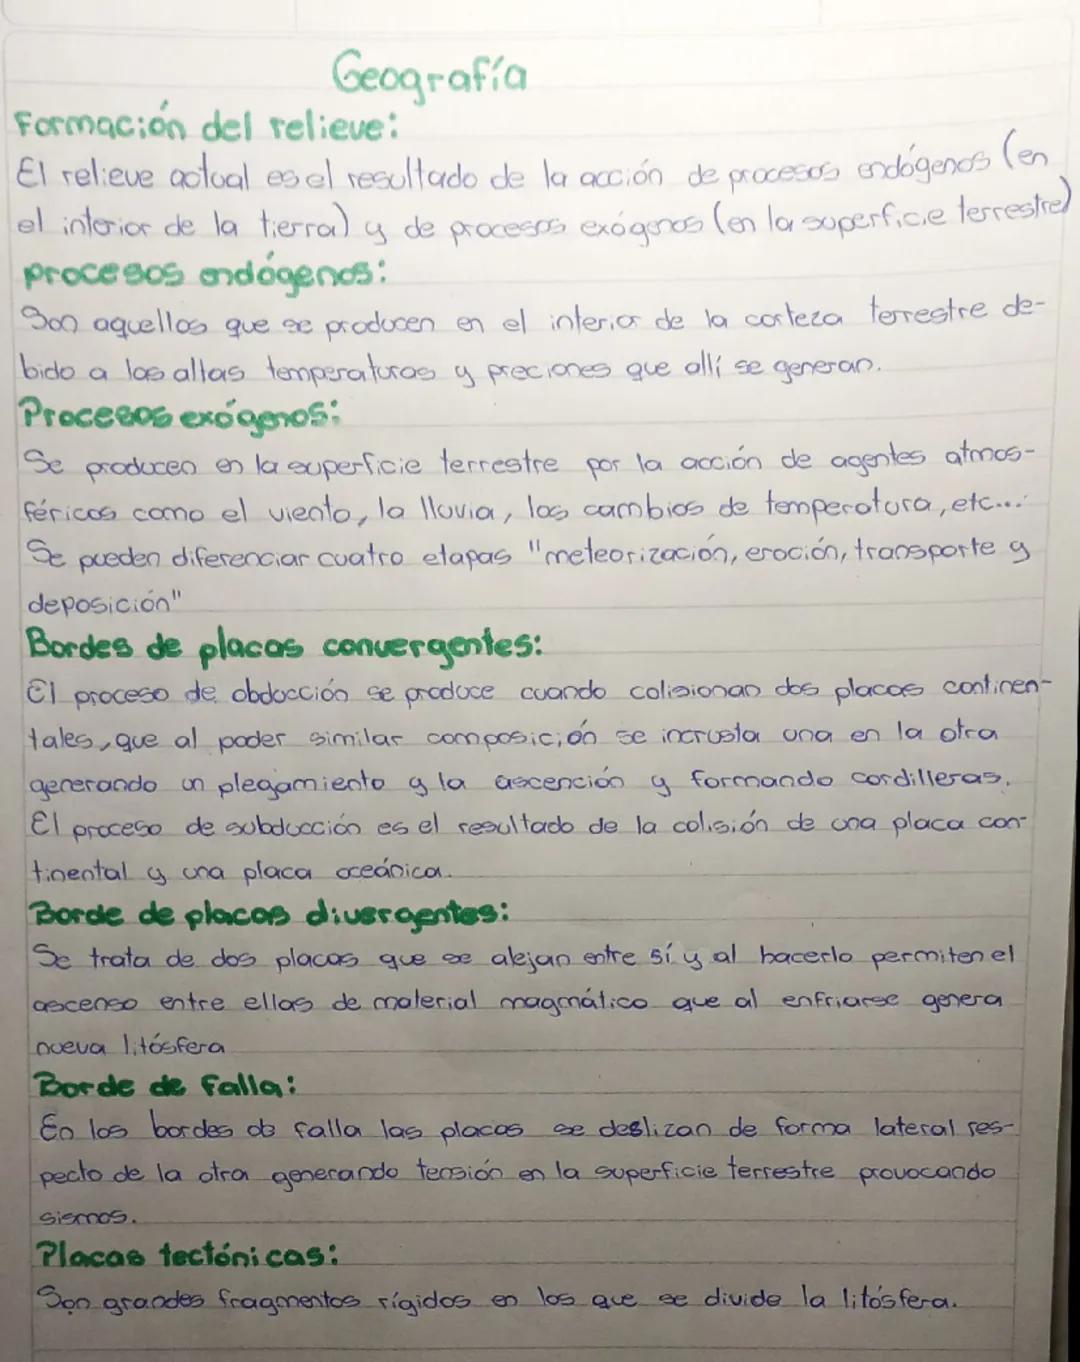 Geografía
Formación del relieve:
El relieve actual es el resultado de la acción de procesos endógenos (en
el interior de la tierra) y de procesos exógenos (en la superficie terrestre)
procesos endógenos:
Son aquellos que se producen en el interior de la corteza terrestre de-
bido a las altas temperaturas y preciones que allí se generan.
Procesos exógenos:
Se producen en la superficie terrestre por la acción de agentes atmos-
féricos como el viento, la lluvia, los cambios de temperatura, etc...
Se pueden diferenciar cuatro etapas "meteorización, eroción, transporte y
deposición"
Bordes de placas convergentes:
El proceso de obducción se produce cuando colisionan dos placas continen-
tales, que al poder similar composición se incrusta una en la otra
generando un plegamiento y la ascención y formando cordilleras.
El proceso de subducción es el resultado de la colisión de una placa con-
tinental y una placa oceánica.
Borde de placas divergentes:
Se trata de dos placas que se alejan entre sí y al hacerlo permiten el
ascenso entre ellas de material magmático que al enfriarse genera
nueva litósfera
Borde de falla:
En los bordes de falla las placas se deslizan de forma lateral res-
pecto de la otra generando tensión en la superficie terrestre provocando
sismos.
Placas tectónicas:
Son grandes fragmentos rígidos en los que se divide la litósfera.